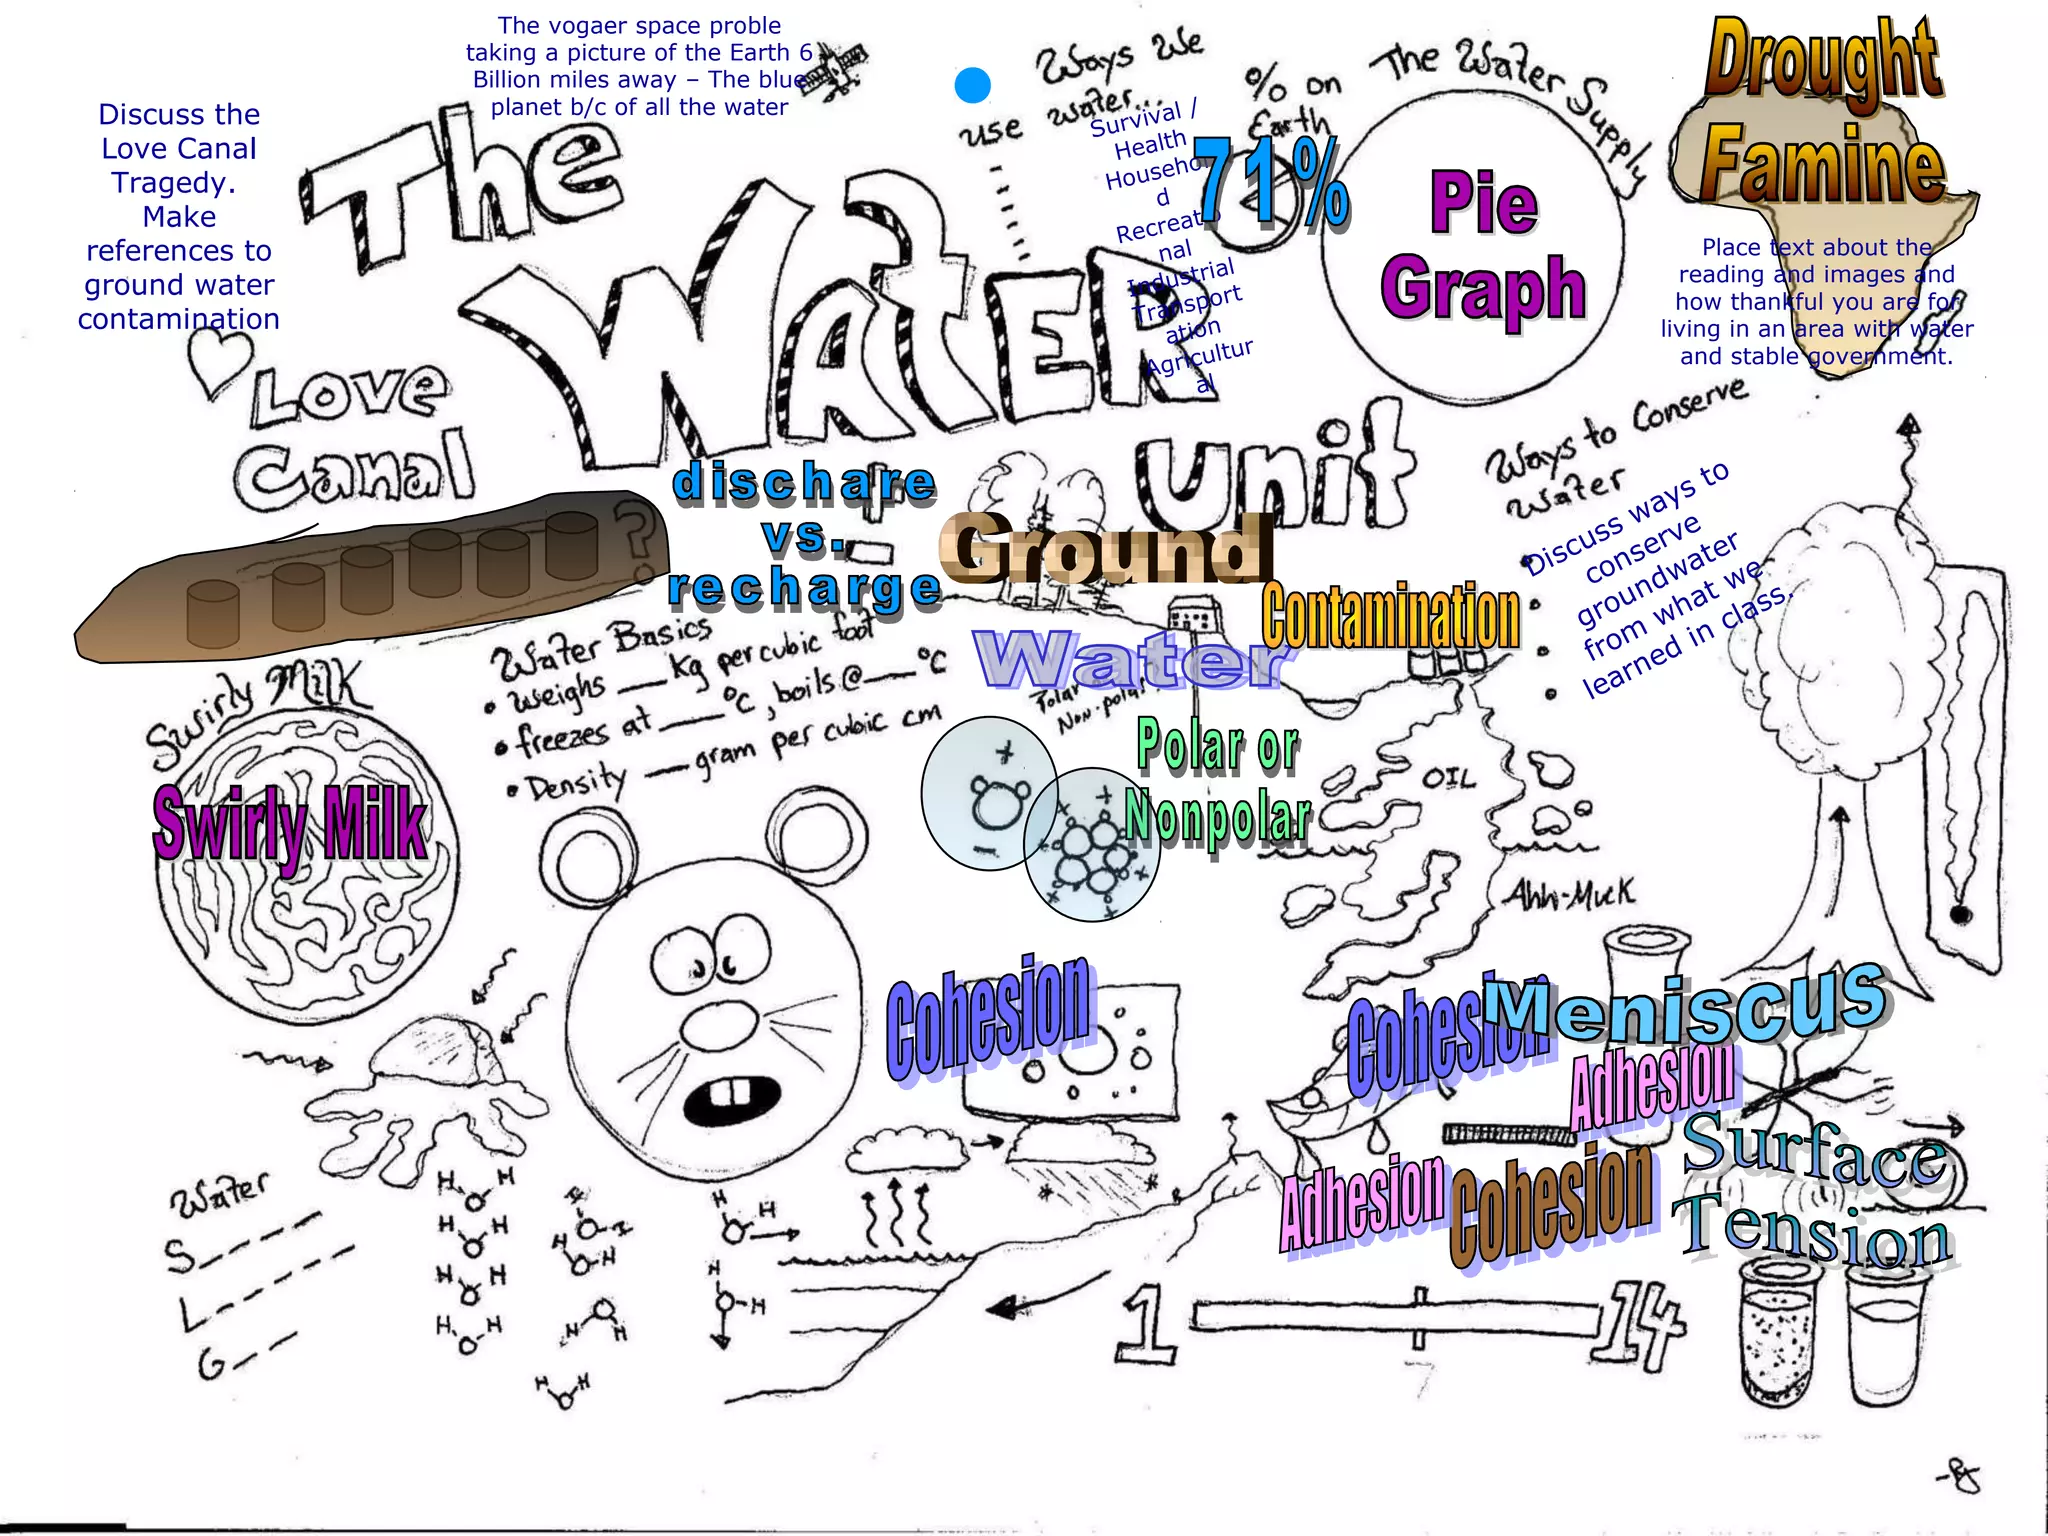 The vogaer space proble
taking a picture of the Earth 6
Billion miles away – The blue
planet b/c of all the water
Discuss the
Love Canal
Tragedy.
Make
references to
ground water
contamination
The
Water
Unit
Ways We
use water...
Survival /
Health
Househol
d
Recreatio
nal
Industrial
Transport
ation
Agricultur
al
% on
Earth
71%
The Water Supply
Pie
Graph
Drought
Famine
Place text about the
reading and images and
how thankful you are for
living in an area with water
and stable government.
Love
Canal
?
dischare
vs.
recharge
Ground
Water
Contamination
Ways to Conserve
Water
Discuss ways to
conserve
groundwater
from what we
learned in class.
Water Basics
• weighs __ kg per cubic foot
• freezes at ___ °C, boils @ ___ °C
• Density __ gram per cubic cm
Swirly Milk
Swirly Milk
Polar or
Non-polar
Polar or
Nonpolar
+
-
OIL
Ahh-Muck
Cohesion
Cohesion
Meniscus
Adhesion
Surface
Tension
Adhesion
Cohesion
Water
S_ _ _ _ _
L_ _ _ _ _
G_ _
H H
H H
H H
H H
H H
H H
H H
H H
H H
1 14
7